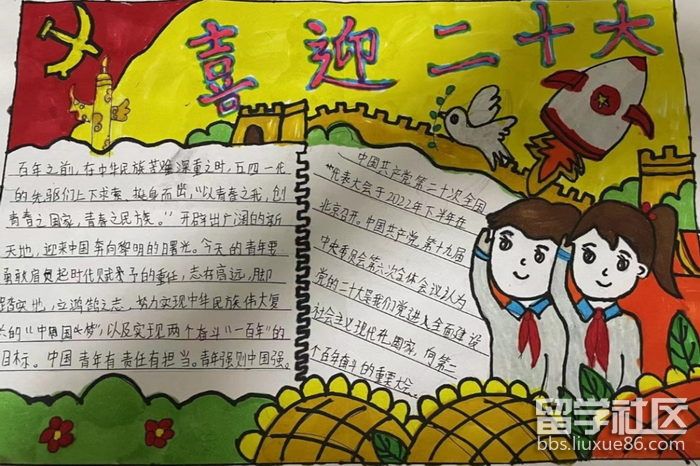 喜迎二十大
百年之前,在中华民族苦难深重之时,五四一代
的先驱们上下求索、挺身而出,“以青春之我,创
青春之国家,青春之民族。”开辟出广阔的新
天地,迎来中国奔向黎明的曙光。今天的青年要
勇敢肩负起时代赋予的重任,志存高远,脚
踏实地,立鸿鹄之志,努力实现中华民族伟大复
兴的“中国梦”,以及实现两个奋斗“一百年”的
目标。中国青年有责任有担当。青年强则中国强。
中国共产党第二十次全国
代表大会于2022年下半年在
北京召开。中国共产党第十九届
中央委员会第六次全体会议认为
党的二十大是我们党进入全面建设
社会主义现代化国家,向第二
个百年奋斗的重要大会
留学社区
bbs.liuxue86.com